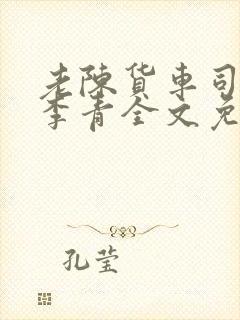 老陈货车司
李青全文免
孔莹